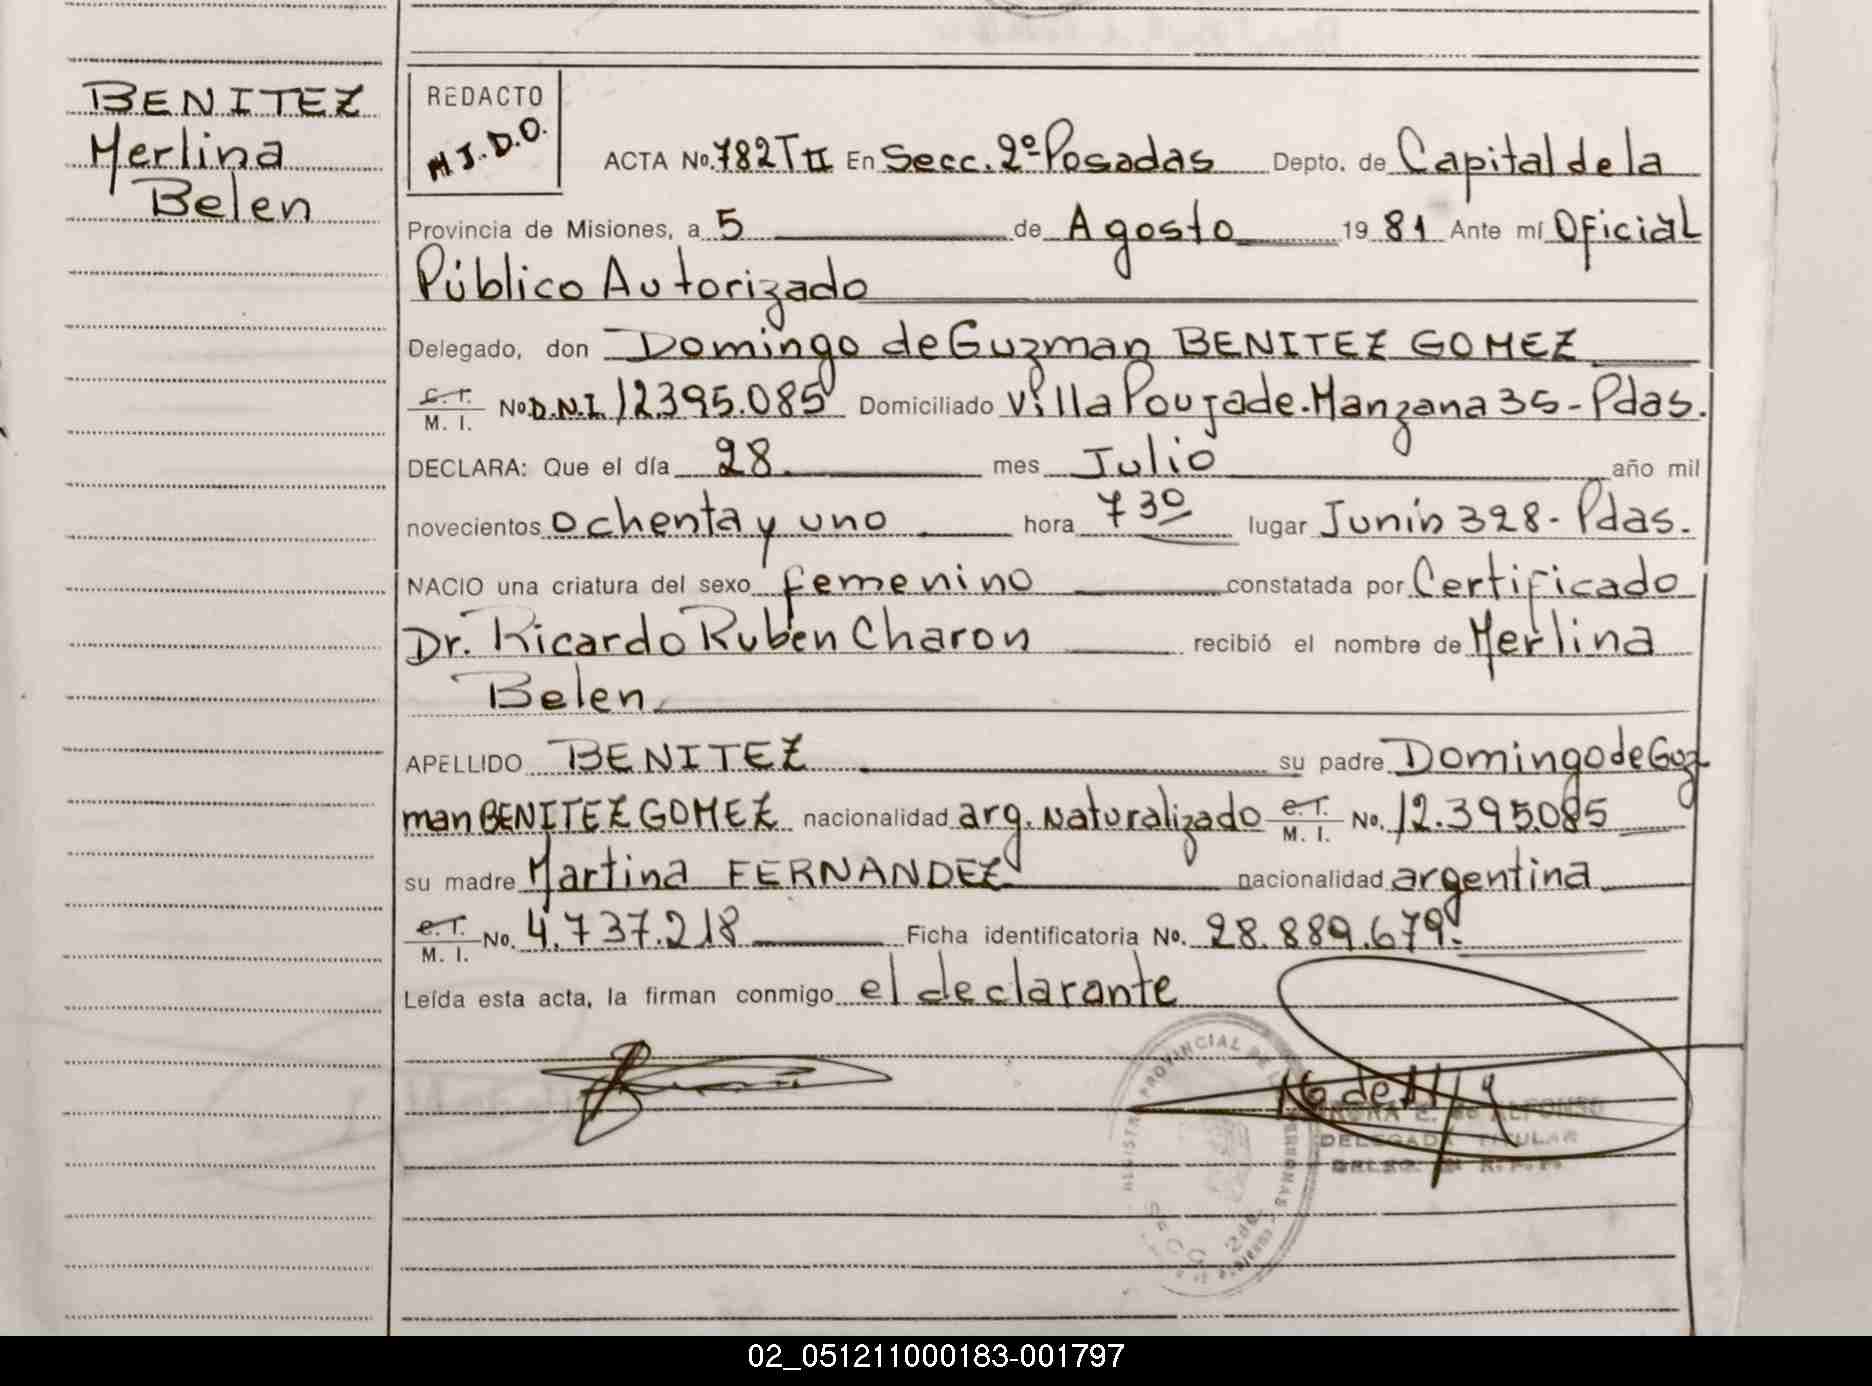 BENITEZ
Merlina
Belen
REDACTO
M J. D. O.
ACTA No. 782 T II En Secc. 2º Posadas Depto. de Capital de la
Provincia de Misiones, a 5 de Agosto 19 81 Ante mí Oficial
Público Autorizado
Delegado, don Domingo de Guzman BENITEZ GOMEZ
C. I. M. I. No D.N.I. 12395.085 Domiciliado Villa Poujade. Manzana 35 - Pdas.
DECLARA: Que el día 28 mes Julio año mil
novecientos ochenta y uno hora 7 30 lugar Junin 328 - Pdas.
NACIO una criatura del sexo femenino constatada por Certificado
Dr. Ricardo Ruben Charon recibió el nombre de Merlina
Belen
APELLIDO BENITEZ su padre Domingo de Guz
man BENITEZ GOMEZ nacionalidad arg. Naturalizado C. I. M. I. No. 12.395.085
su madre Martina FERNANDEZ nacionalidad argentina
C. I. M. I. No. 4.737.218 Ficha identificatoria No. 28.889.679.
Leída esta acta, la firman conmigo el declarante
REGISTRO PROVINCIAL DE LAS PERSONAS
Secc 2da.
E. de ALFONSO
DELEGADA TITULAR
02_051211000183-001797